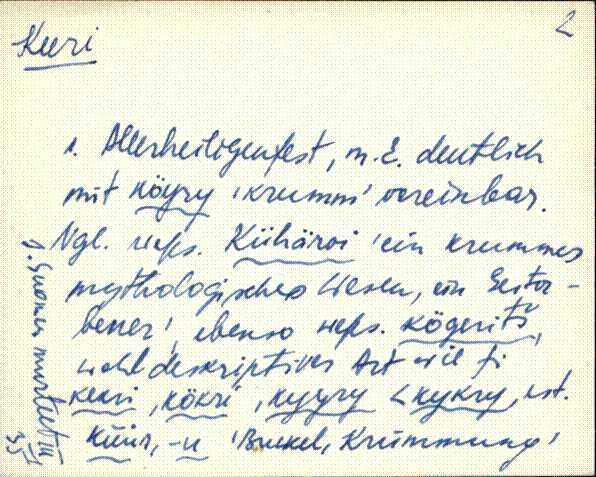 2
Keeri
1. Allerheiligenfest, m. E. deutlich
mit köyry 'krumm' vereinbar.
Vgl. weps. Kühäroi 'ein krummes
mythologisches Wesen, ein Gestor-
bener', ebenso weps. kögerits,
wohl deskriptiver Art wie fi
kekri, kökri, kyyry < kykry, est.
küür, -u 'Buckel, Krümmung'
Suomen murteet III